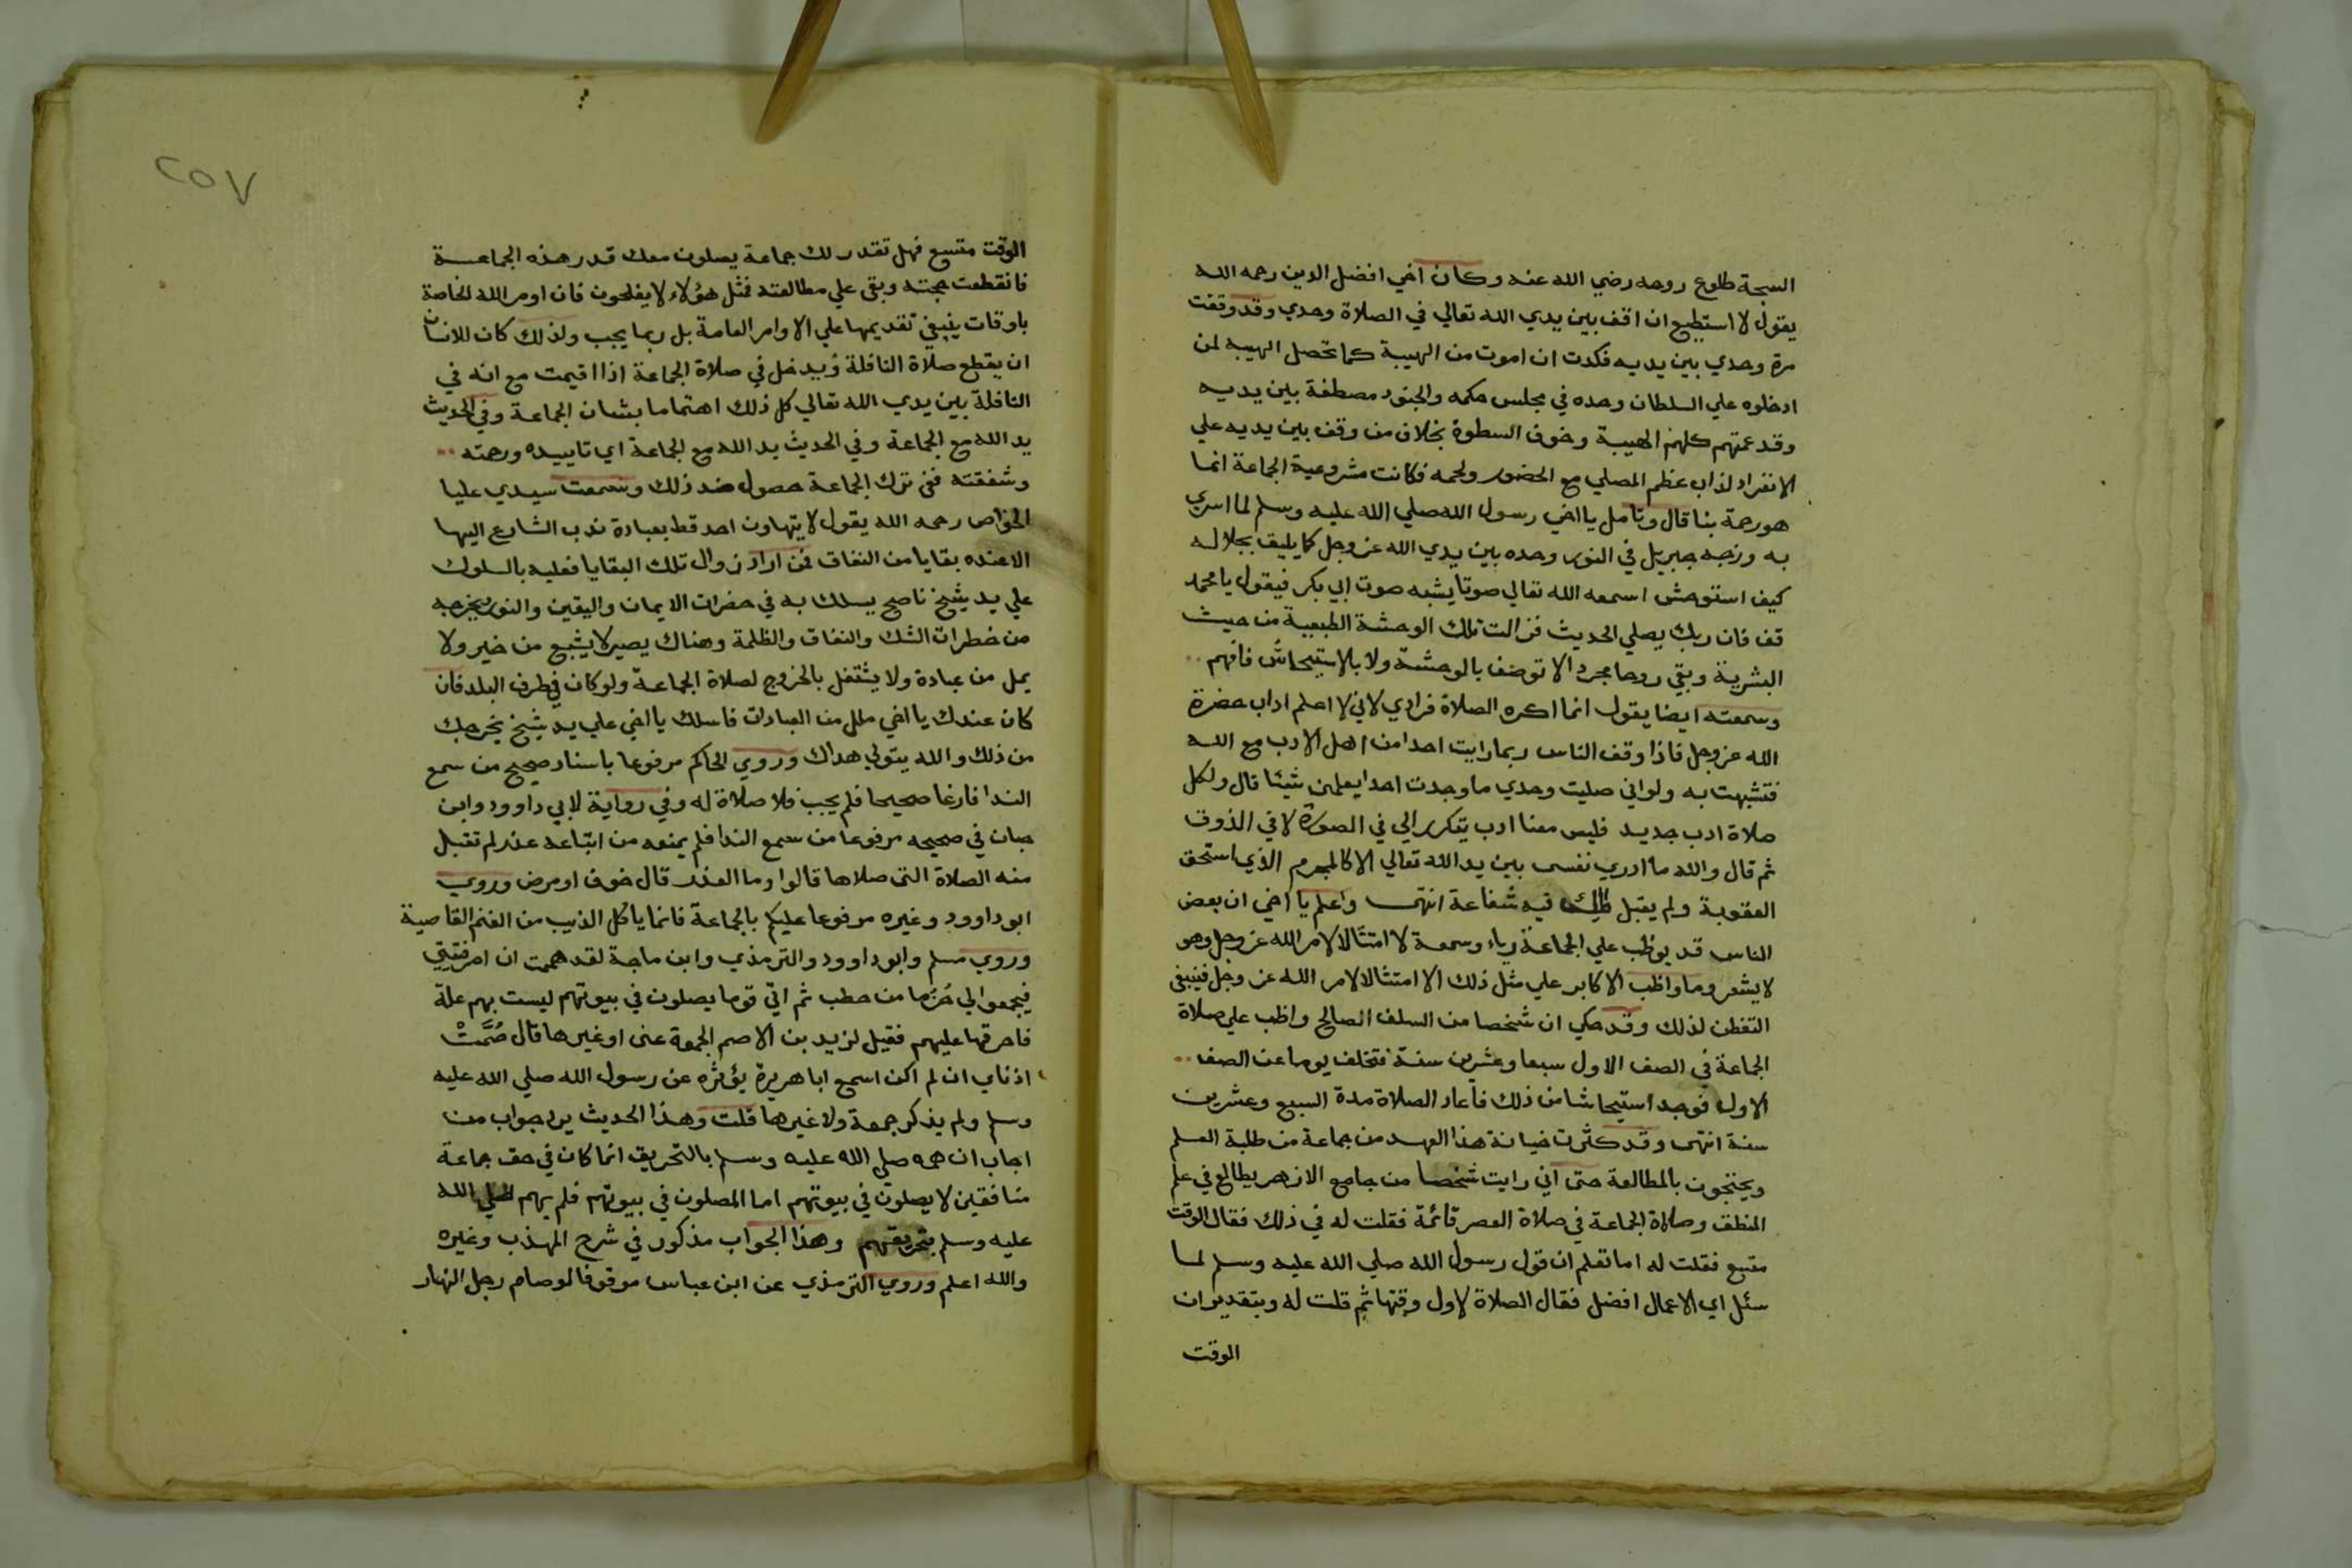 السبحة طلوع روحه رضي الله عنه وكان اخي افضل الدين رحمه الله
يقول لا استطيع ان اقف بين يدي الله تعالي في الصلاة وحدي وقد وقفت
مرة وحدي بين يديه فكدت ان اموت من الهيبة كما تحصل الهيبه لمن
ادخلوه علي السلطان وحده في مجلس حكمه والجنود مصطفة بين يديه
وقد عمتهم كلهم الهيبة وخوف السطوة بخلاف من وقف بين يديه علي
الانفراد لذاب عظم المصلي مع الحضور ولحمه فكانت مشروعية الجماعة انما
هو رحمة بنا قال وتامل يا اخي رسول الله صلي الله عليه وسلم لما اسري
به وزجه جبريل في النور وحده بين يدي الله عز وجل كما يليق بجلاله
كيف استوحش اسمعه الله تعالي صوتا يشبه صوت ابي بكر فيقول يا محمد
قف فان ربك يصلي الحديث فزالت تلك الوحشة الطبيعية من حيث
البشرية وبقي روحا مجردا لا توصف بالوحشة ولا بالاستيحاش فافهم
وسمعته ايضا يقول انما اكره الصلاة فرادي لاني لا اعلم اداب حضرة
الله عز وجل فاذا وقف الناس ربما رايت احدا من اهل الادب مع الله
فتشبهت به ولو اني صليت وحدي ما وجدت احدا يعلمني شيئا قال ولكل
صلاة ادب جديد فليس معنا ادب يتكرر الي في الصورة لا في الذوق
ثم قال والله ما ادري نفسي بين يد الله تعالي الا كالمجرم الذي استحق
العقوبة ولم يقبل فيه شفاعة انتهي واعلم يا اخي ان بعض
الناس قد يوظب علي الجماعة رياء وسمعة لا امتثالا لامر الله عز وجل وهو
لا يشعر وما واظب الاكابر علي مثل ذلك الا امتثالا لامر الله عز وجل فينبغي
التفطن لذلك وقد حكي ان شخصا من السلف الصالح واظب علي صلاة
الجماعة في الصف الاول سبعا وعشرين سنة فتخلف يوما عن الصف
الاول فوجد استيحاشا من ذلك فاعاد الصلاة مدة السبع وعشرين
سنة انتهي وقد كثرت خيانة هذا العهد من جماعة من طلبة العلم
ويحتجون بالمطالعة حتى اني رايت شخصا من جامع الازهر يطالع في علم
المنطق وصلاة الجماعة في صلاة العصر قائمة فقلت له في ذلك فقال الوقت
متسع فقلت له اما تعلم ان قول رسول الله صلي الله عليه وسلم لما
سئل اي الاعمال افضل فقال الصلاة لاول وقتها ثم قلت له وبتقدير ان
الوقت
٢٥٧
الوقت متسع فهل تقدر لك جماعة يصلون معك قدر هذه الجماعة
فانقطعت حجته وبقي علي مطالعته فمثل هؤلاء لا يفلحون فان اومر الله الخاصة
باوقات ينبغي تقديمها علي الاوامر العامة بل ربما يجب ولذلك كان للانسان
ان يقطع صلاة النافلة ويدخل في صلاة الجماعة اذا اقيمت مع انه في
النافلة بين يدي الله تعالي كل ذلك اهتماما بشان الجماعة وفي الحديث
يد الله مع الجماعة وفي الحديث يد الله مع الجماعة اي تاييده ورحمته
وشفقته ففي ترك الجماعة حصول ضد ذلك وسمعت سيدي عليا
الخواص رحمه الله يقول لا يتهاون احد قط بعبادة ندب الشارع اليها
الا عنده بقايا من النفاق فمن اراد زوال تلك البقايا فعليه بالسلوك
علي يد شيخ ناصح يسلك به في حضرات الايمان واليقين والنور ويخرجه
من خطرات الشك والنفاق والظلمة وهناك يصير لا يشبع من خير ولا
يمل من عبادة ولا يشتغل بالخروج لصلاة الجماعة ولو كان في طرف البلد فان
كان عندك يا اخي ملل من العبادات فاسلك يا اخي علي يد شيخ يخرجك
من ذلك والله يتولي هداك وروي الحاكم مرفوعا باسناد صحيح من سمع
الندا فارغا صحيحا فلم يجب فلا صلاة له وفي رواية لابي داوود وابن
حبان في صحيحه مرفوعا من سمع الندا فلم يمنعه من اتباعه عذر لم تقبل
منه الصلاة التي صلاها قالوا وما العذر قال خوف او مرض وروي
ابو داوود وغيره مرفوعا عليكم بالجماعة فانما ياكل الذيب من الغنم القاصية
وروي مسلم وابو داوود والترمذي وابن ماجة لقد هممت ان امر فتيتي
فيجمعوا لي حُزُما من حطب ثم اتي قوما يصلون في بيوتهم ليست بهم علة
فاحرقها عليهم فقيل لزيد بن الاصم الجمعة عنى او غيرها قال صُمَّتْ
اذناي ان لم اكن اسمع ابا هريرة يؤثره عن رسول الله صلي الله عليه
وسلم ولم يذكر جمعة ولا غيرها قلت وهذا الحديث يرد جواب من
اجاب ان همه صلي الله عليه وسلم بالتحريق انما كان في حق جماعة
منافقين لا يصلون في بيوتهم اما المصلون في بيوتهم فلم يهم صلي الله
عليه وسلم بتحريقهم وهذا الجواب مذكور في شرح المهذب وغيره
والله اعلم وروي الترمذي عن ابن عباس موقوفا لو صام رجل النهار